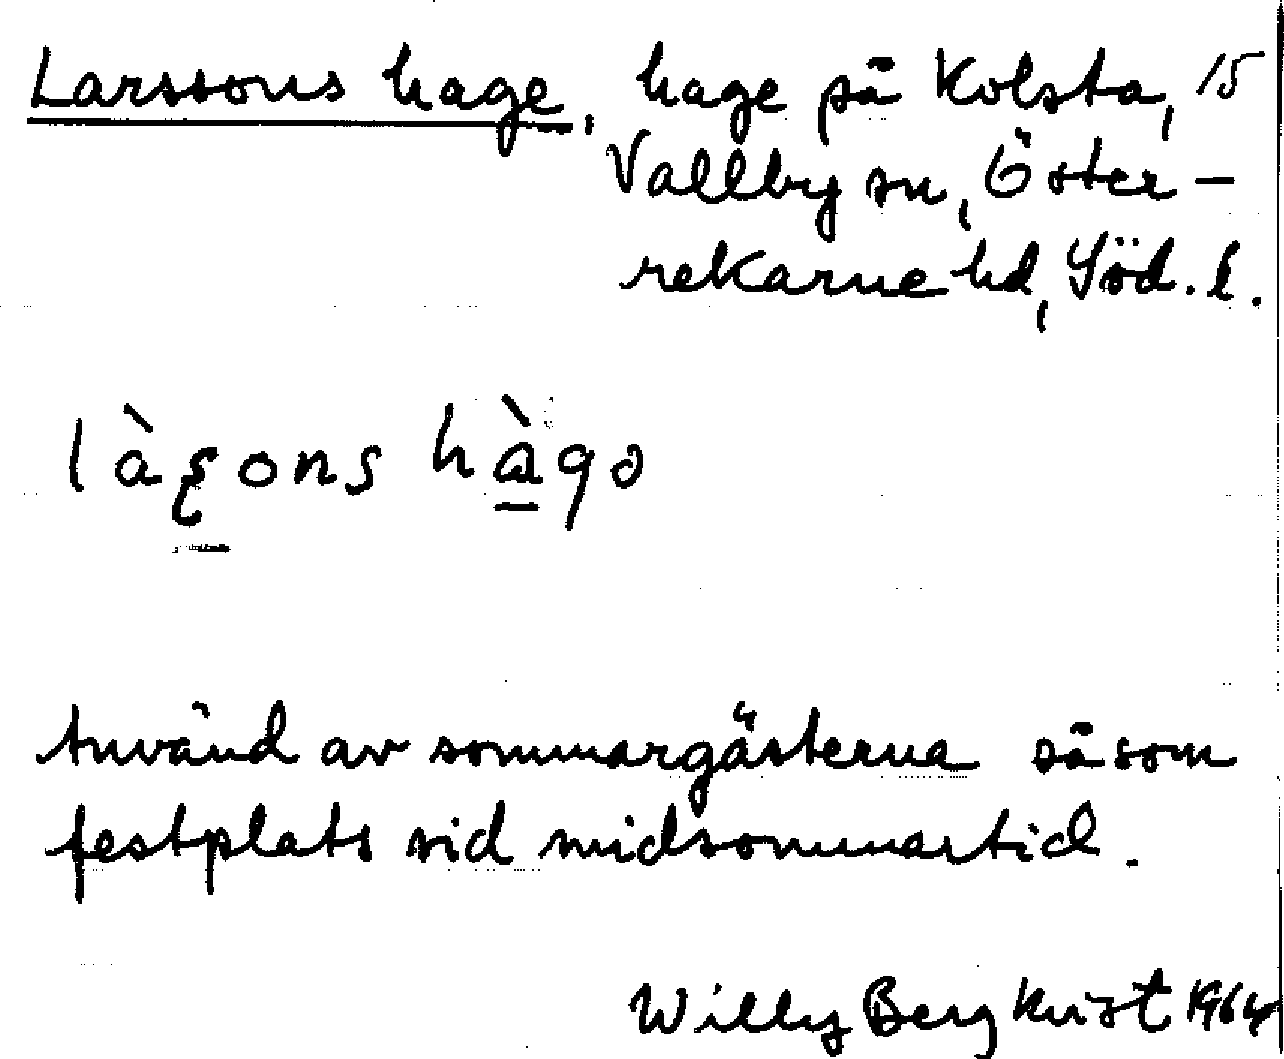 Larssons hage, hage på Kolsta, 15
Vallby sn, Öster-
rekarne hd, Söd. l.
hàgə
Använd av sommargästerna såsom
festplats vid midsommartid.
Willy Bergkvist 1964